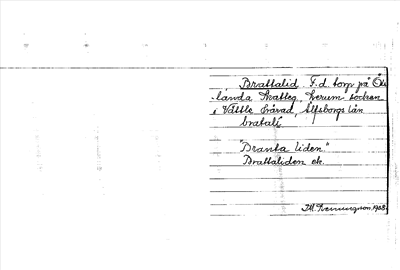 Brattalid F.d. torp på Öls-
landa Skatteg, Lerum socken
i Vättle härad, Älfsborgs län
bratalí.
"Branta liden."
Brattaliden ok.
1908.